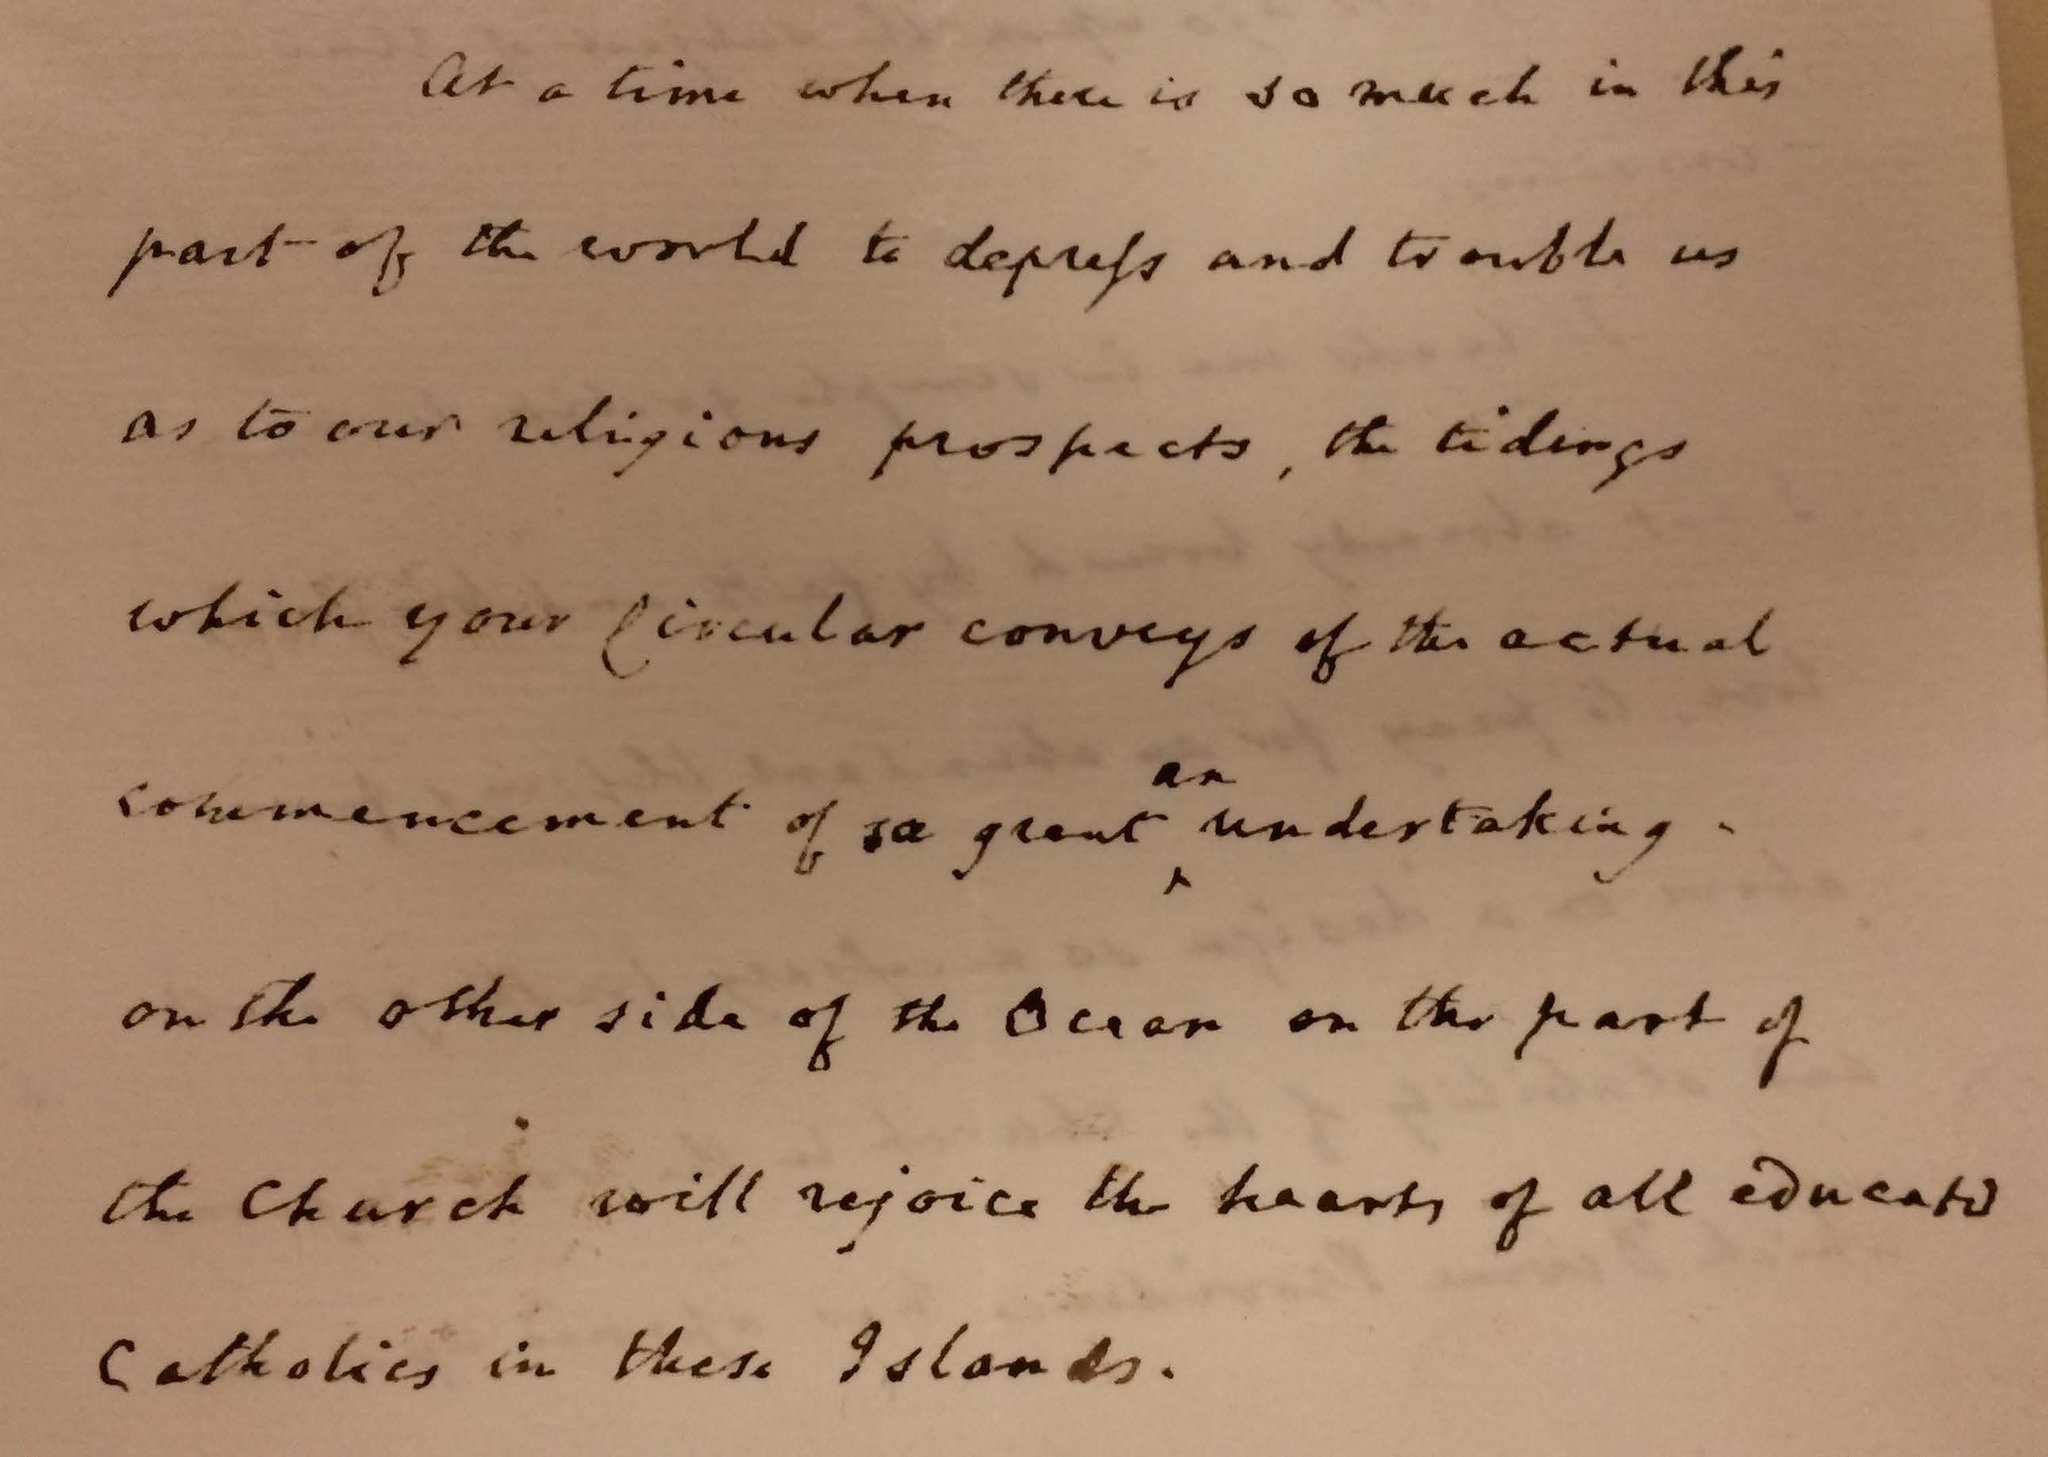 At a time when there is so much in this
part of the world to depress and trouble us
as to our religious prospects, the tidings
which your Circular conveys of the actual
commencement of so great an undertaking
on the other side of the Ocean on the part of
the Church will rejoice the hearts of all educated
Catholics in these Islands.